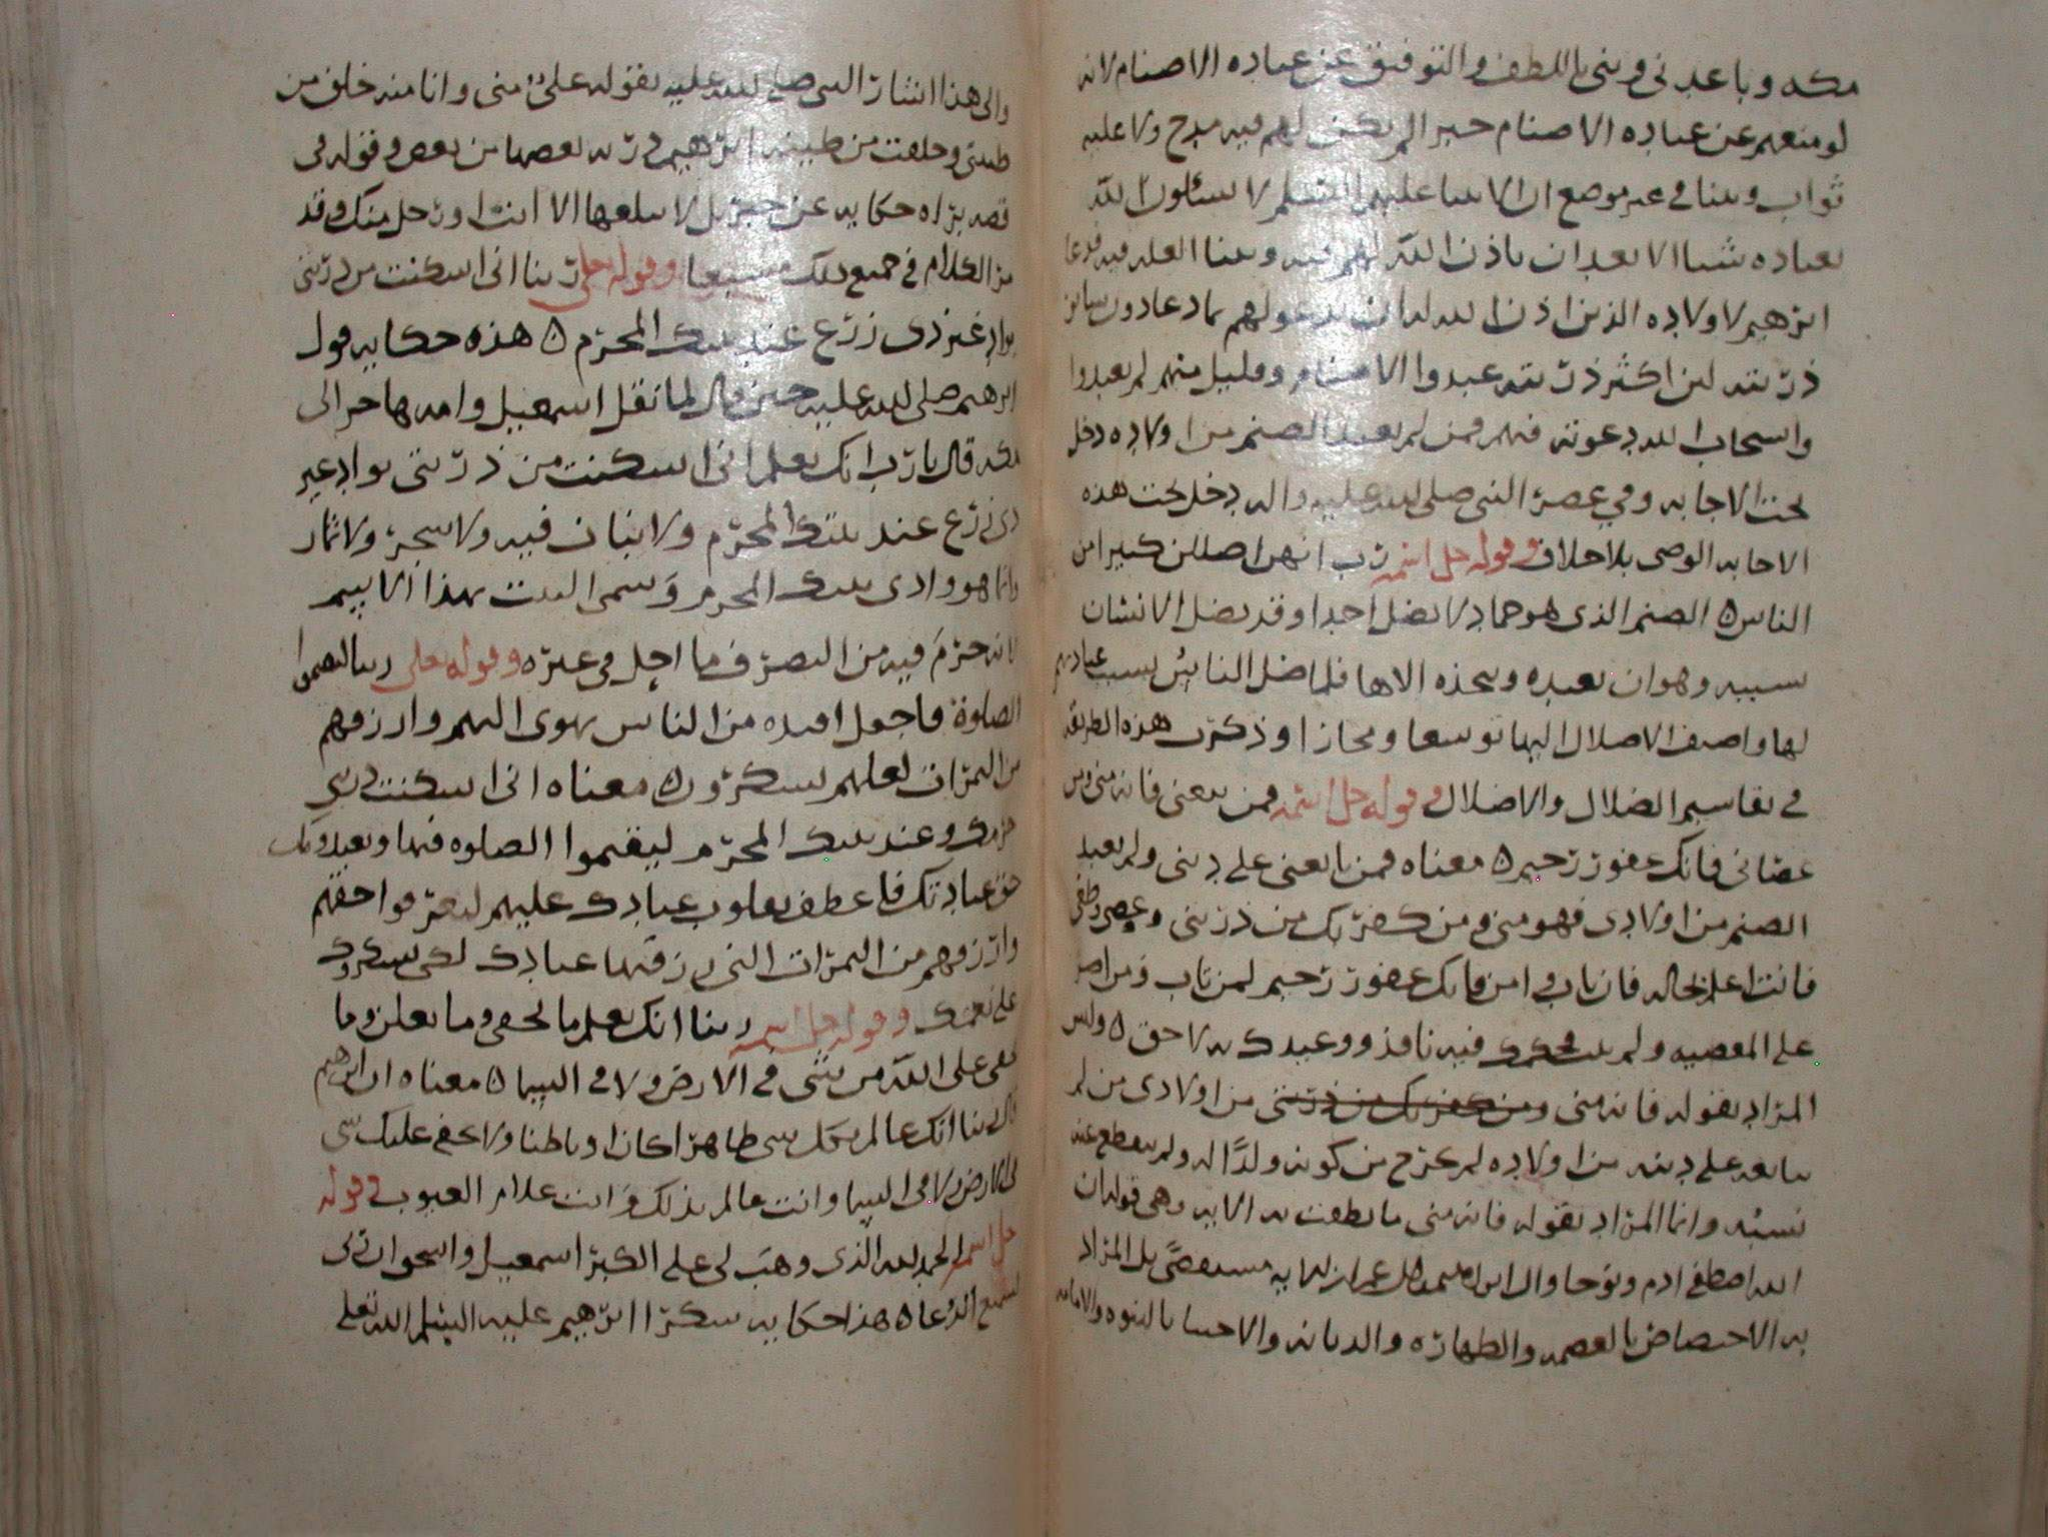 مكه وباعدنى وبنى باللطف والتوفيق عن عباده الاصنام لانه
لو منعهم عن عباده الاصنام جبرا لم يكن لهم فيه مدح ولا عليه
ثواب وبينا فى غير موضع ان الانبيا عليهم السلم لا يسئلون الله
لعباده شيا الا بعد ان ياذن الله لهم فيه وبينا العله فيه فدعا
ابرهيم لاولاده الذين اذن الله له ان يدعو لهم بما دعا دون ساير
ذريته لان اكثر ذريته عبدوا الاصنام وقليل منهم لم يعبدوا
واستجاب الله دعوته فيهم فمن لم يعبد الصنم من اولاده دخل
تحت الاجابه وفي عصر النبى صلى الله عليه واله دخل تحت هذه
الاجابه الوصى بلا خلاف وقوله جل اسمه رب انهن اضللن كثيرا من
الناس ٥ الصنم الذى هو جماد لا يضل احدا وقد يضل الانسان
بسببه وهو ان يعبده ويتخذه الاها فلما ضل الناس بسبب عبادتهم
لها واضيف الاضلال اليها توسعا ومجازا وذكرت هذه الطريقه
فى تقاسيم الضلال والاضلال وقوله جل اسمه فمن تبعنى فانه منى ومن
عصانى فانك غفور رحيم ٥ معناه فمن تابعنى على دينى ولم يعبد
الصنم من اولادى فهو منى ومن كفر بك من ذريتى وعصى وطغى
فانت اعلم بحاله فان تاب وامن فانك غفور رحيم لمن تاب ومن اصر
على المعصيه ولم يتب فحكمك فيه نافذ ووعيدك به لاحق ٥ وليس
المراد بقوله فانه منى ومن كفر بك من ذريتى من اولادى من لم
يتابعه على دينه من اولاده لم يخرج من كونه ولدًا له ولم ينقطع عنه
نسبه وانما المراد بقوله فانه منى ما نطقت به الايه وهى قوله ان
الله اصطفى ادم ونوحا وال ابراهيم وال عمران الايه بل المراد
به الاختصاص بالعصمه والطهاره والديانه والاجتبا بالنبوه والامامه
والى هذا اشار النبى صلى الله عليه بقوله على منى وانا منه خلق من
طينتى وخلقت من طينه ابرهيم ذريه بعضها من بعض وقوله فى
قصه براه حكايه عن جبريل لا يبلغها الا انت او رجل منك وقد
مر الكلام فى جميع ذلك مشبعا وقوله تعلى ربنا انى اسكنت من ذريتى
بواد غير ذى زرع عند بيتك المحرم ٥ هذه حكايه قول
ابرهيم صلى الله عليه حين قال لما نقل اسمعيل وامه هاجر الى
مكه قال يا رب انك تعلم انى اسكنت من ذريتى بواد غير
ذى زرع عند بيتك المحرم ولا نبات فيه ولا شجر ولا ثمار
وانما هو وادى بيتك المحرم وسمى البيت بهذا الاسم
لانه حرم فيه من التصرف ما احل فى غيره وقوله تعلى ربنا ليقيموا
الصلوة فاجعل افئده من الناس تهوى اليهم وارزقهم
من الثمرات لعلهم يشكرون ٥ معناه انى اسكنت ذريتى
حرمك وعند بيتك المحرم ليقيموا الصلوه فيها ويعبدونك
حق عبادتك فاعطف بقلوب عبادك عليهم ليعرفوا حقهم
وارزقهم من الثمرات التى رزقتها عبادك لكى يشكروك
على نعمك وقوله جل اسمه ربنا انك تعلم ما نخفى وما نعلن وما
يخفى على الله من شى فى الارض ولا فى السما ٥ معناه ان ابرهيم
قال ربنا انك عالم بكل شى ظاهرا كان او باطنا ولا يخفى عليك شى
فى الارض ولا فى السما وانت عالم بذلك وانت علام الغيوب وقوله
جل اسمه الحمد لله الذى وهب لى على الكبر اسمعيل واسحق ان ربى
لسميع الدعا ٥ هذا حكايه شكر ابرهيم عليه السلم الله تعلى